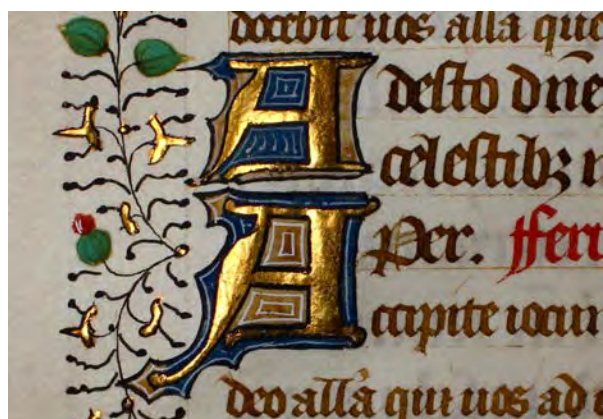 docebit uos alla que
Adesto dñe
celestibꝫ
per. fferi
Accipite iocun
deo all̃a qui uos ad